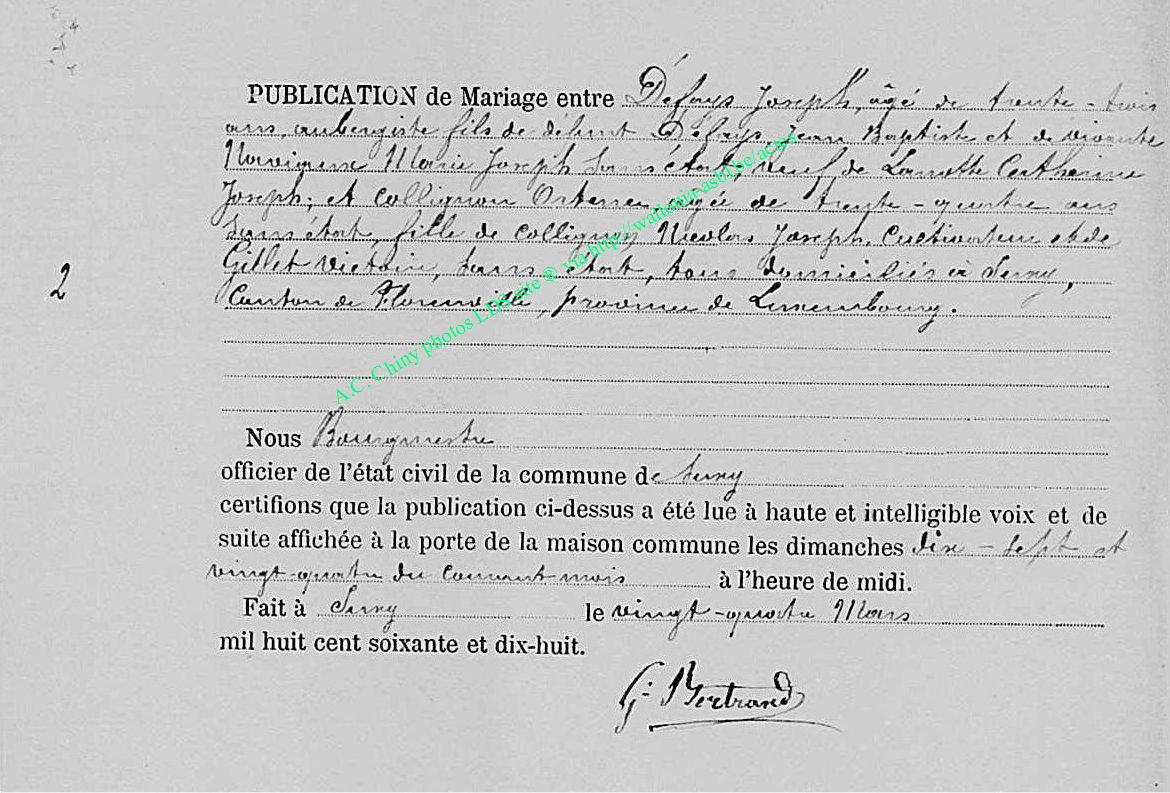 PUBLICATION de Mariage entre Défays Joseph, âgé de trente-trois
ans, aubergiste fils de défunt Défays Jean Baptiste et de vivante
Marie Joseph sans état, veuf de Lamotte Catherine
Joseph; et Collignon âgée de trente-quatre ans
sans état, fille de Collignon Nicolas Joseph, Cultivateur et de
Gillet Victoire, sans état, tous domiciliés à Suxy,
Canton de Florenville, province de Luxembourg.
2
A.C. Chiny photos LDS site ® via http://wallonia-asbl.be/acms
Nous Bourgmestre
officier de l'état civil de la commune de Suxy
certifions que la publication ci-dessus a été lue à haute et intelligible voix et de
suite affichée à la porte de la maison commune les dimanches dix-sept et
vingt-quatre du courant mois à l'heure de midi.
Fait à Suxy le vingt-quatre Mars
mil huit cent soixante et dix-huit.
G. Bertrand